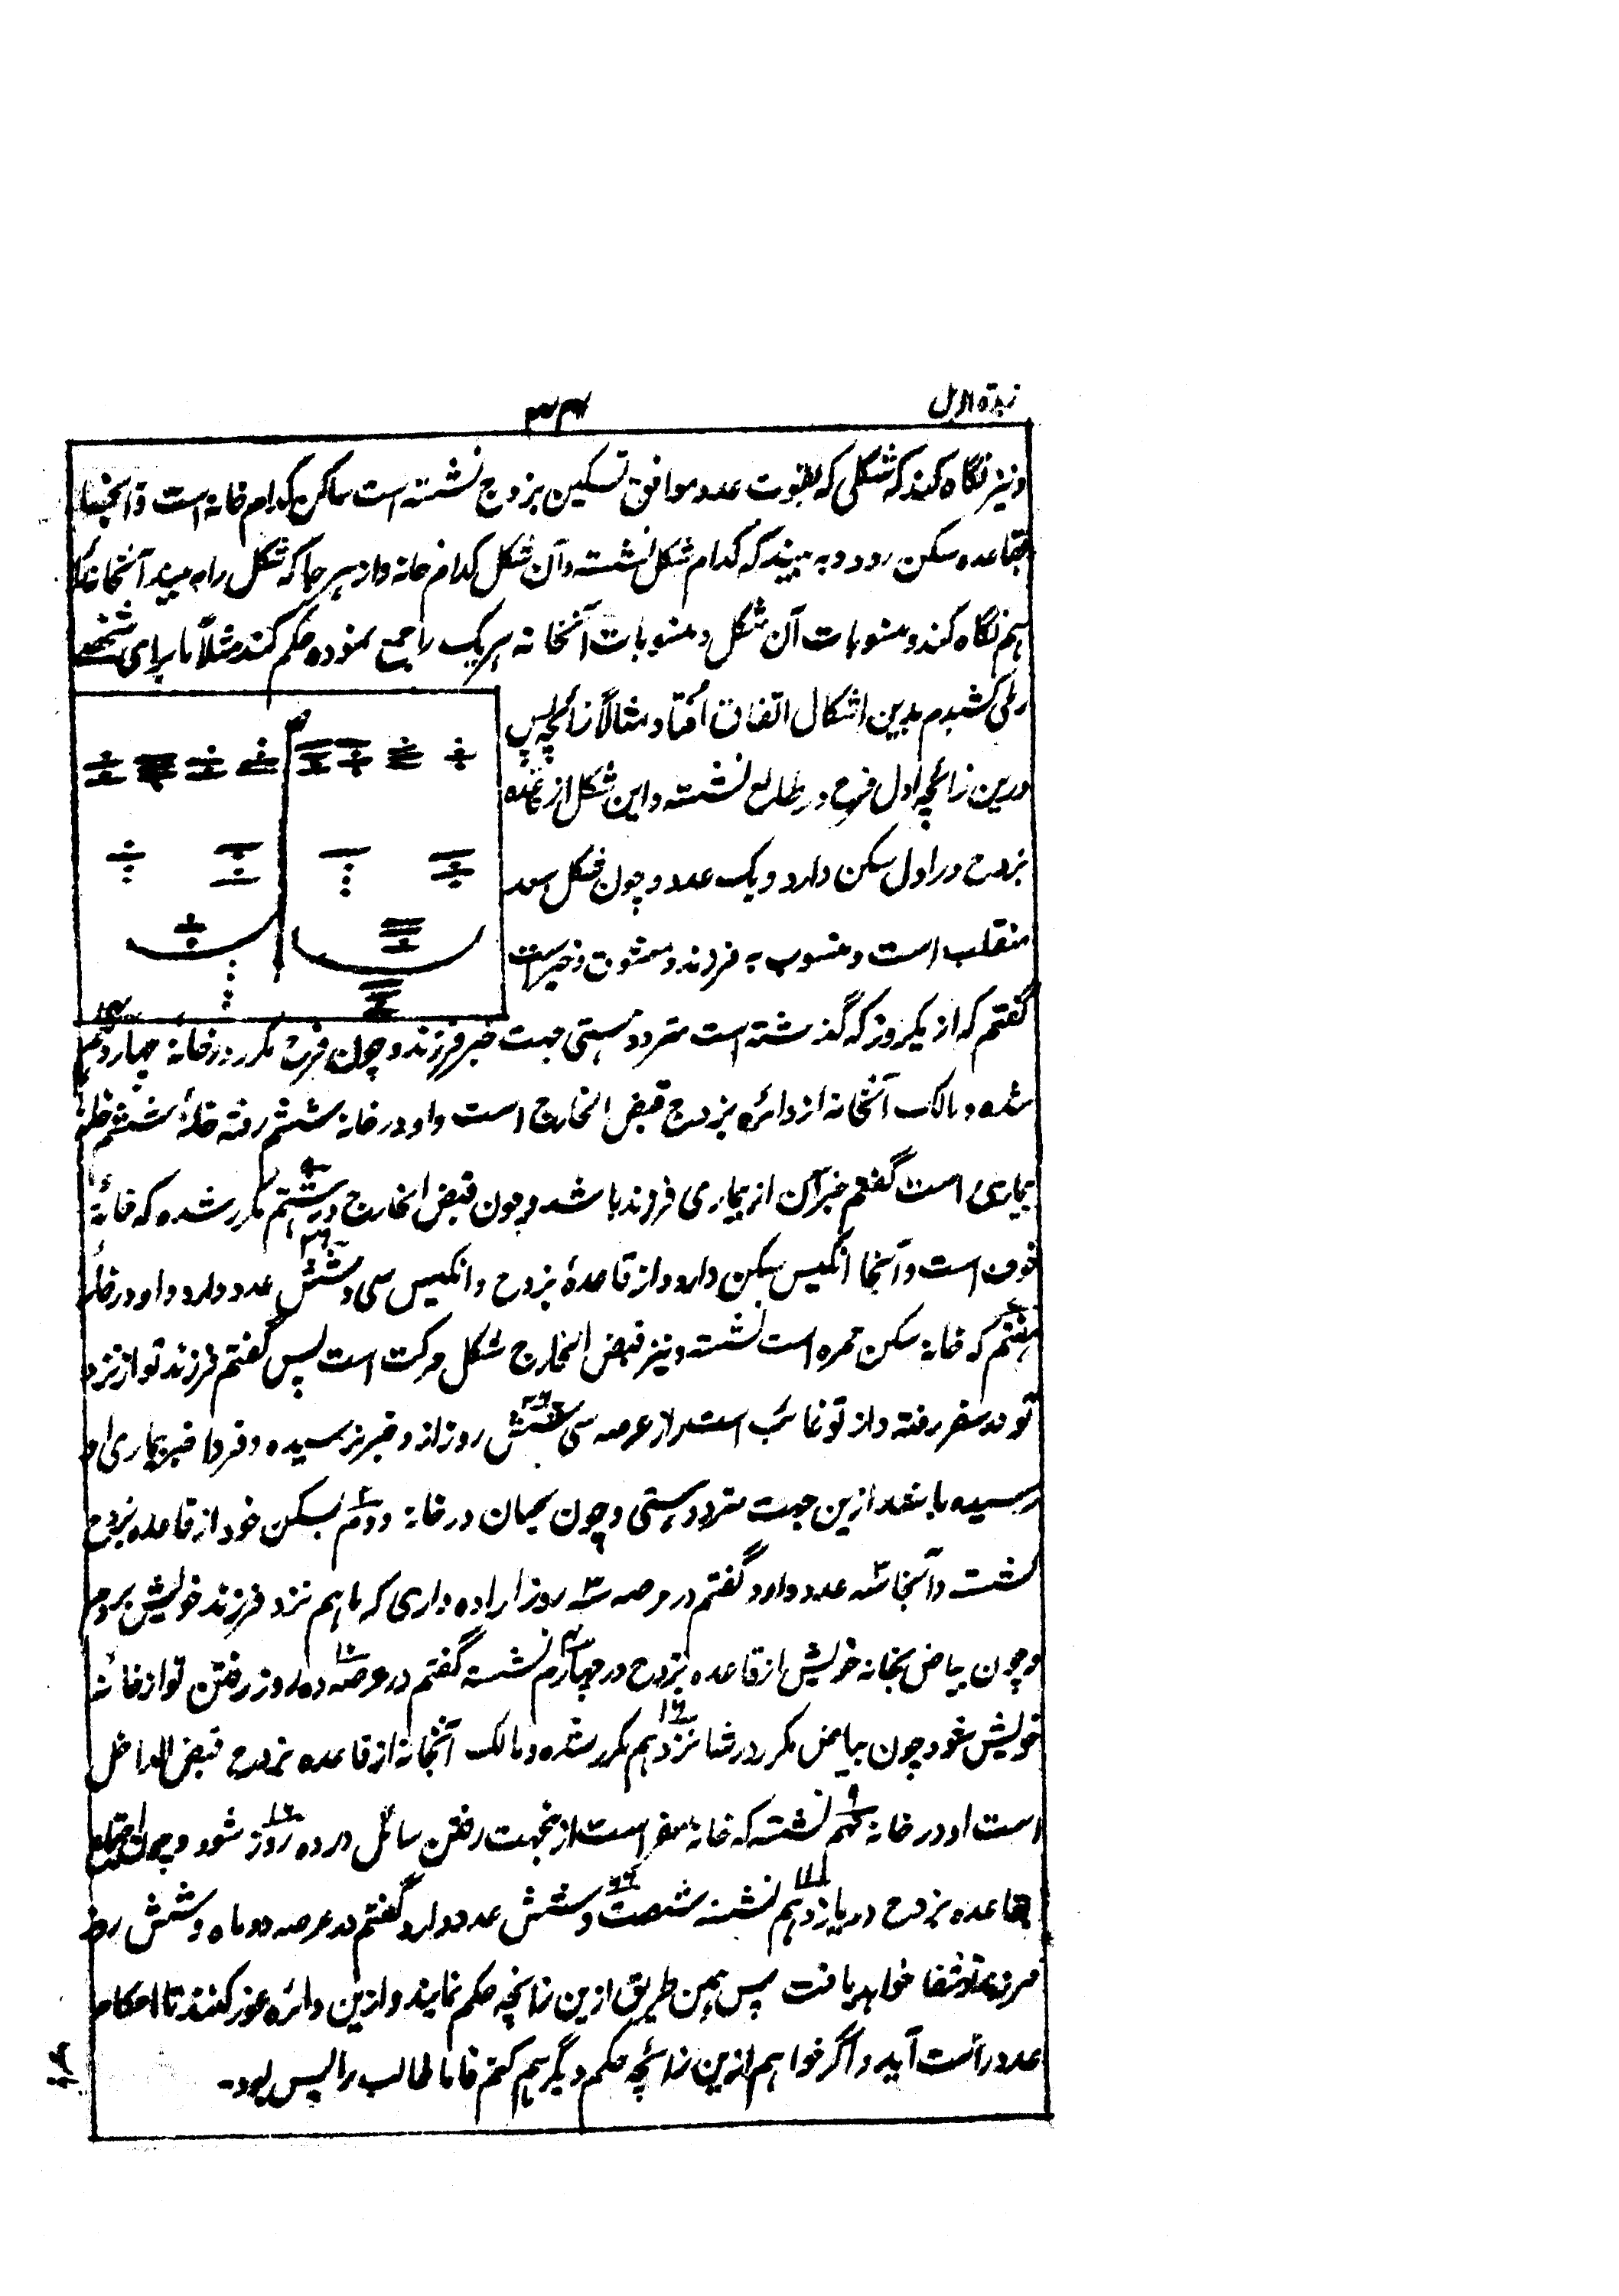 زبدة الرمل
۳۴
و نیز نگاه کند که شکلی که بقوت عدد موافق تسکین بزدح نشسته است ساکن کدام خانه است و آنجا
بقاعده سکن رود و به بیند که کدام شکل نشسته و آن شکل کدام خانه و از هر جا که شکل راه میبد آنخانه
هم نگاه کند و منسوبات آن شکل و منسوبات آنخانه هر یک را جمع نموده حکم کند مثلاً ما برای شخصے
رملی کشیدم بدین اشکال اتفاق افتاد مثالاً زائچه پس
درین زائچه اول فرح در طالع نشسته و این شکل از قاعده
بزدح در اول سکن دارد و یک عدد و چون شکل سعد
منقلب است و منسوب به فرزند و معشوق و خبر است
گفتم که از یکروز که گذشته است متردد هستی جهت خبر فرزند و چون فرح مکرر در خانهٔ چهاردهم
شده و مالک آنخانه از دائره بزدح قبض الخارج است و او در خانه ششم رفته خانهٔ ششم خانهٔ
بیماری است گفتم خبر آن از بیماری فرزند باشد و چون قبض الخارج در هشتم مکرر شده که خانهٔ
خوف است و آنجا انکیس سکن دارد از قاعدهٔ بزدح و انکیس سی و شش عدد دارد و او در خانهٔ
هفتم که خانهٔ سکن حمره است نشسته و نیز قبض الخارج شکل حرکت است پس گفتم فرزند تو از نزد
تو در سفر رفته و از تو غائب است از عرصه سی و شش روز از و خبر نرسیده و فردا خبر بیماری او
رسیده باشد ازین جهت متردد هستی و چون لحیان در خانه دوم بسکن خود از قاعده بزدح
نشست و آنجا سه عدد دارد گفتم در عرصه سه روز اراده داری که ما هم نزد فرزند خویش بروم
و چون بیاض بخانه خویش از قاعده بزدح در چهارم نشسته گفتم در عرصه ده روز رفتن تو از خانهٔ
خویش شود چون بیاض مکرر در شانزدهم مکرر شده و مالک آنخانه از قاعده بزدح قبض الداخل
است او در خانه نهم نشسته که خانهٔ سفر است ازینجهت رفتن سائل در ده روز شود و چون اجتماع
بقاعده بزدح در یازدهم نشسته شصت و شش عدد دارد گفتم در عرصه دو ماه و شش روز
فرزند تو شفا خواهد یافت پس بهمین طریق ازین زائچه حکم نمایند و ازین دائره غور کنند تا احکام
عدد راست آید و اگر خواهم ازین زائچه حکم دیگر هم کنم فاما طالب را بس بود۔